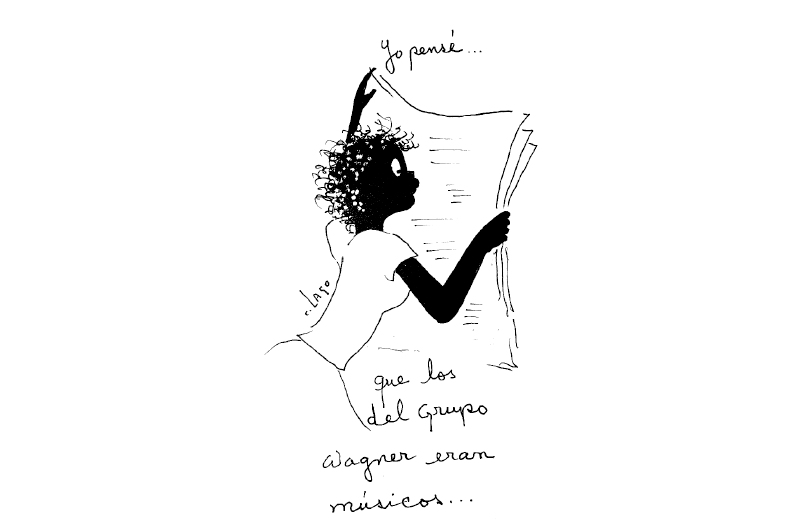 Yo pensé...
c. Lago
que los
del Grupo
Wagner eran
músicos...